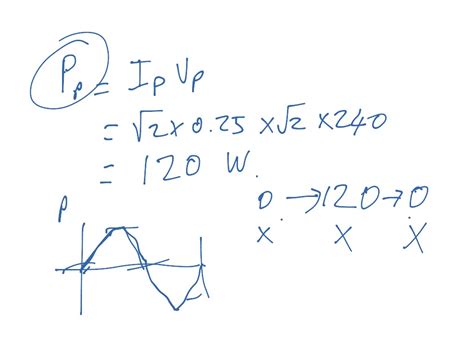 P_P = I_P V_P
= √2 × 0.25 × √2 × 240
= 120 W.
0 → 120 → 0
X X X
P